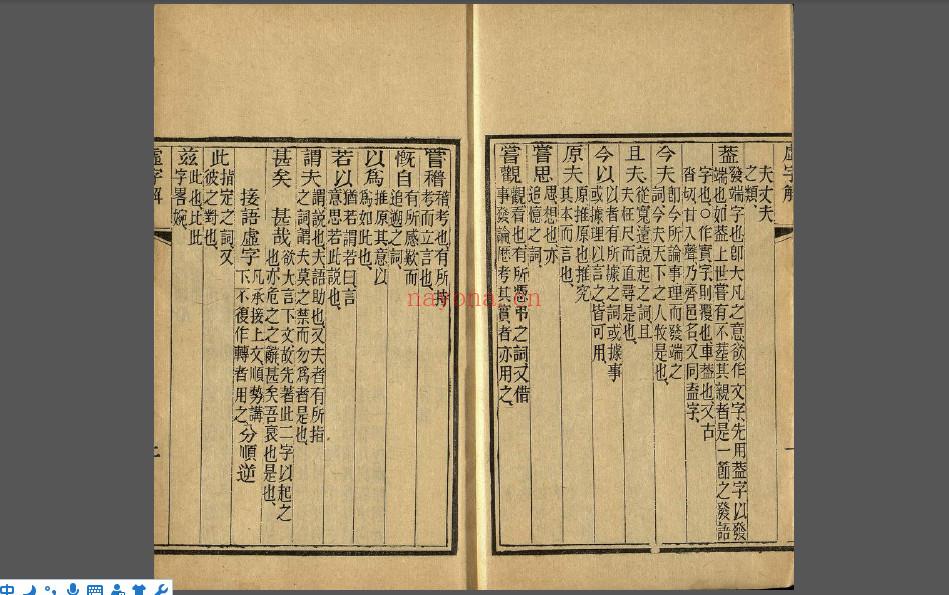 虛字解
夫丈夫
之類、
葢 發端字也卽大凡之意、欲作文字、先用葢字以發
端也如葢上世嘗有不葬其親者是一節之發語
字也、○作實字則覆也車葢也、又古
沓切甘入聲乃齊邑名又同盍字、
今夫 卽今所論事理而發端之
詞今夫天下之人牧是也、
且夫 從寬遠說起之詞且
夫枉尺而直尋是也、
今以 以者有所據之詞或據事
或據理以言之皆可用、
原夫 原推原也推究
其本而言也、
嘗思 思想也亦
追憶之詞、
嘗觀 觀看也有所憑弔之詞、又借
事發論歷考其實者亦用之、
嘗稽 稽考也有所持
考而立言也、
慨自 有所感歎而
追遡之詞、
以爲 推原其意以
爲如此也、
若以 猶若謂若曰言
意思若此說也、
謂夫 謂說也、夫語助也、又夫者有所指
之詞謂夫莫之禁而勿爲者是也、
甚矣 甚哉 欲大言下文故先著此二字以起之
也亦危之之辭甚矣吾衰也是也、
接語虛字 凡承接上文順勢講
下不復作轉者用之 分順逆
此 指定之詞又
彼之對也、
茲 此也比此
字畧婉、
虛字解
nayona.cn
中